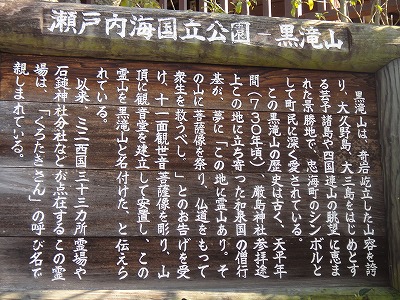 瀬戸内海国立公園 - 黒滝山
黒滝山は、奇岩屹立した山容を誇
り、大久野島、大三島をはじめとす
る芸予諸島や四国連山の眺望に恵ま
れた景勝地で、忠海町のシンボルと
して町民に深く愛されている。
この黒滝山の歴史は古く、天平年
間(730年頃)、厳島神社参拝途
上この地に立ち寄った和泉国の僧行
基が、夢に「この地に霊山あり。そ
の山に菩薩像を祭り、仏道をもって
衆生を救うべし。」とのお告げを受
け、十一面観世音菩薩像を彫り、山
頂に観音堂を建立して安置し、この
霊山を黒滝山と名付けた、と伝えら
れている。
以来、ミニ西国三十三カ所霊場や
石鎚神社分社などが点在するこの霊
場は、「くろたきさん」の呼び名で
親しまれている。